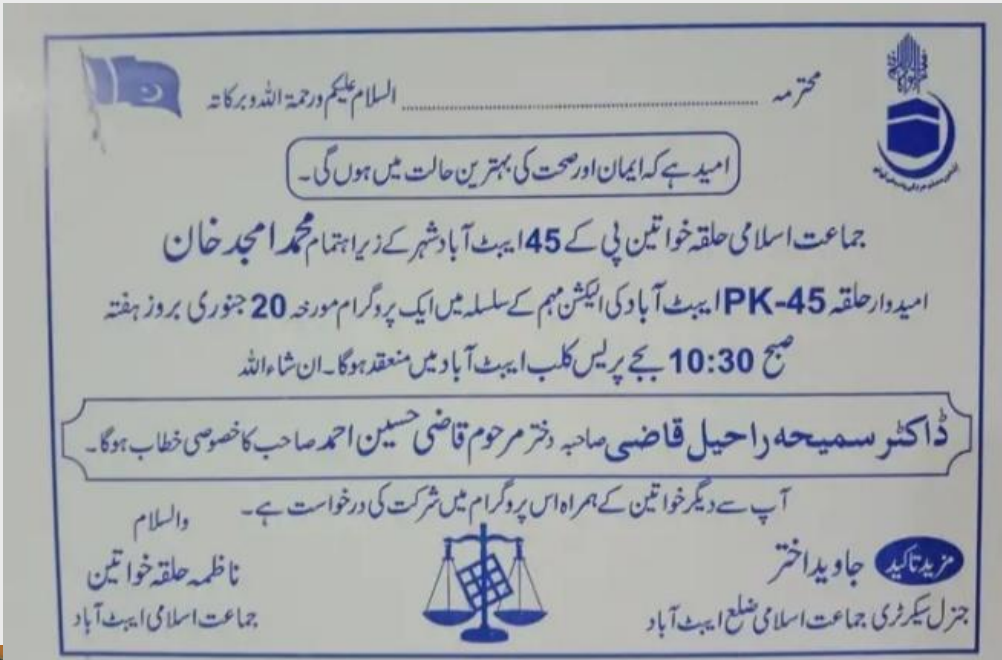 محترمہ ........................ السلام علیکم ورحمۃ اللہ وبرکاتہ
امید ہے کہ ایمان اور صحت کی بہترین حالت میں ہوں گی۔
جماعت اسلامی حلقہ خواتین پی کے 45 ایبٹ آباد شہر کے زیر اہتمام محمد امجد خان
امیدوار حلقہ PK-45 ایبٹ آباد کی الیکشن مہم کے سلسلہ میں ایک پروگرام مورخہ 20 جنوری بروز ہفتہ
صبح 10:30 بجے پریس کلب ایبٹ آباد میں منعقد ہوگا۔ ان شاء اللہ
ڈاکٹر سمیحہ راحیل قاضی صاحبہ دختر مرحوم قاضی حسین احمد صاحب کا خصوصی خطاب ہوگا۔
آپ سے دیگر خواتین کے ہمراہ اس پروگرام میں شرکت کی درخواست ہے۔
والسلام
مزید تاکید جاوید اختر
ناظمہ حلقہ خواتین
جنرل سیکرٹری جماعت اسلامی ضلع ایبٹ آباد
جماعت اسلامی ایبٹ آباد